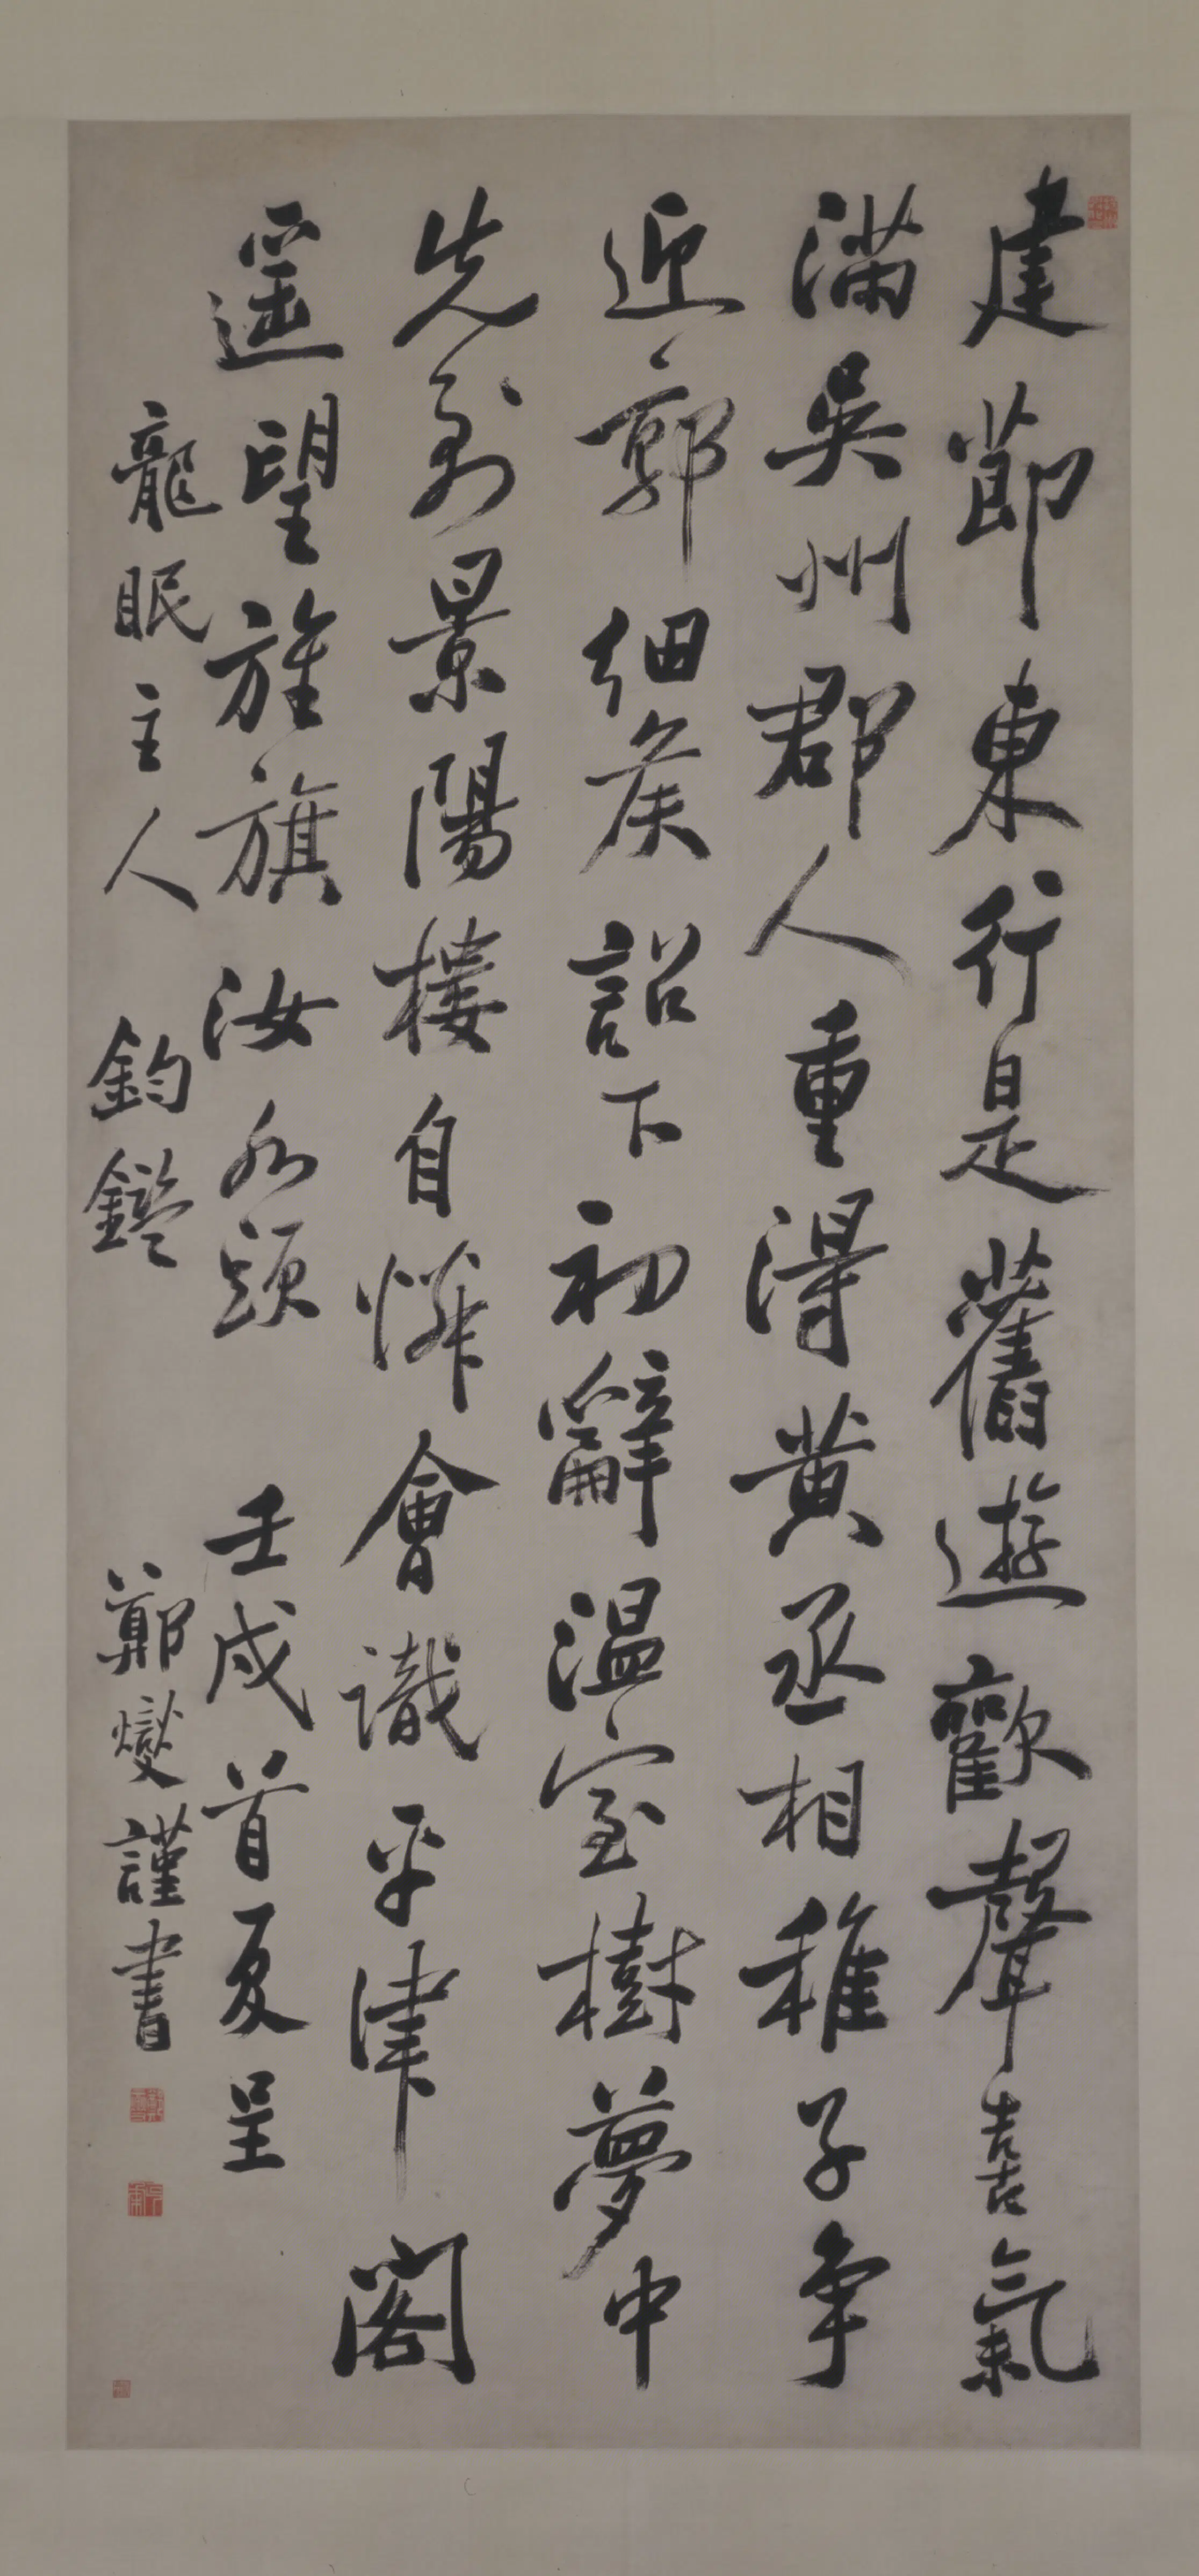 建節東行是舊遊歡聲喜氣
滿吳州郡人重得黃丞相稚子争
迎郭細侯詔下初辭温室樹夢中
先到景陽樓自憐不識平津閣
遥望旌旗汝水頭 壬戌首夏呈
龍眠主人 鈞鑑 鄭燮謹書